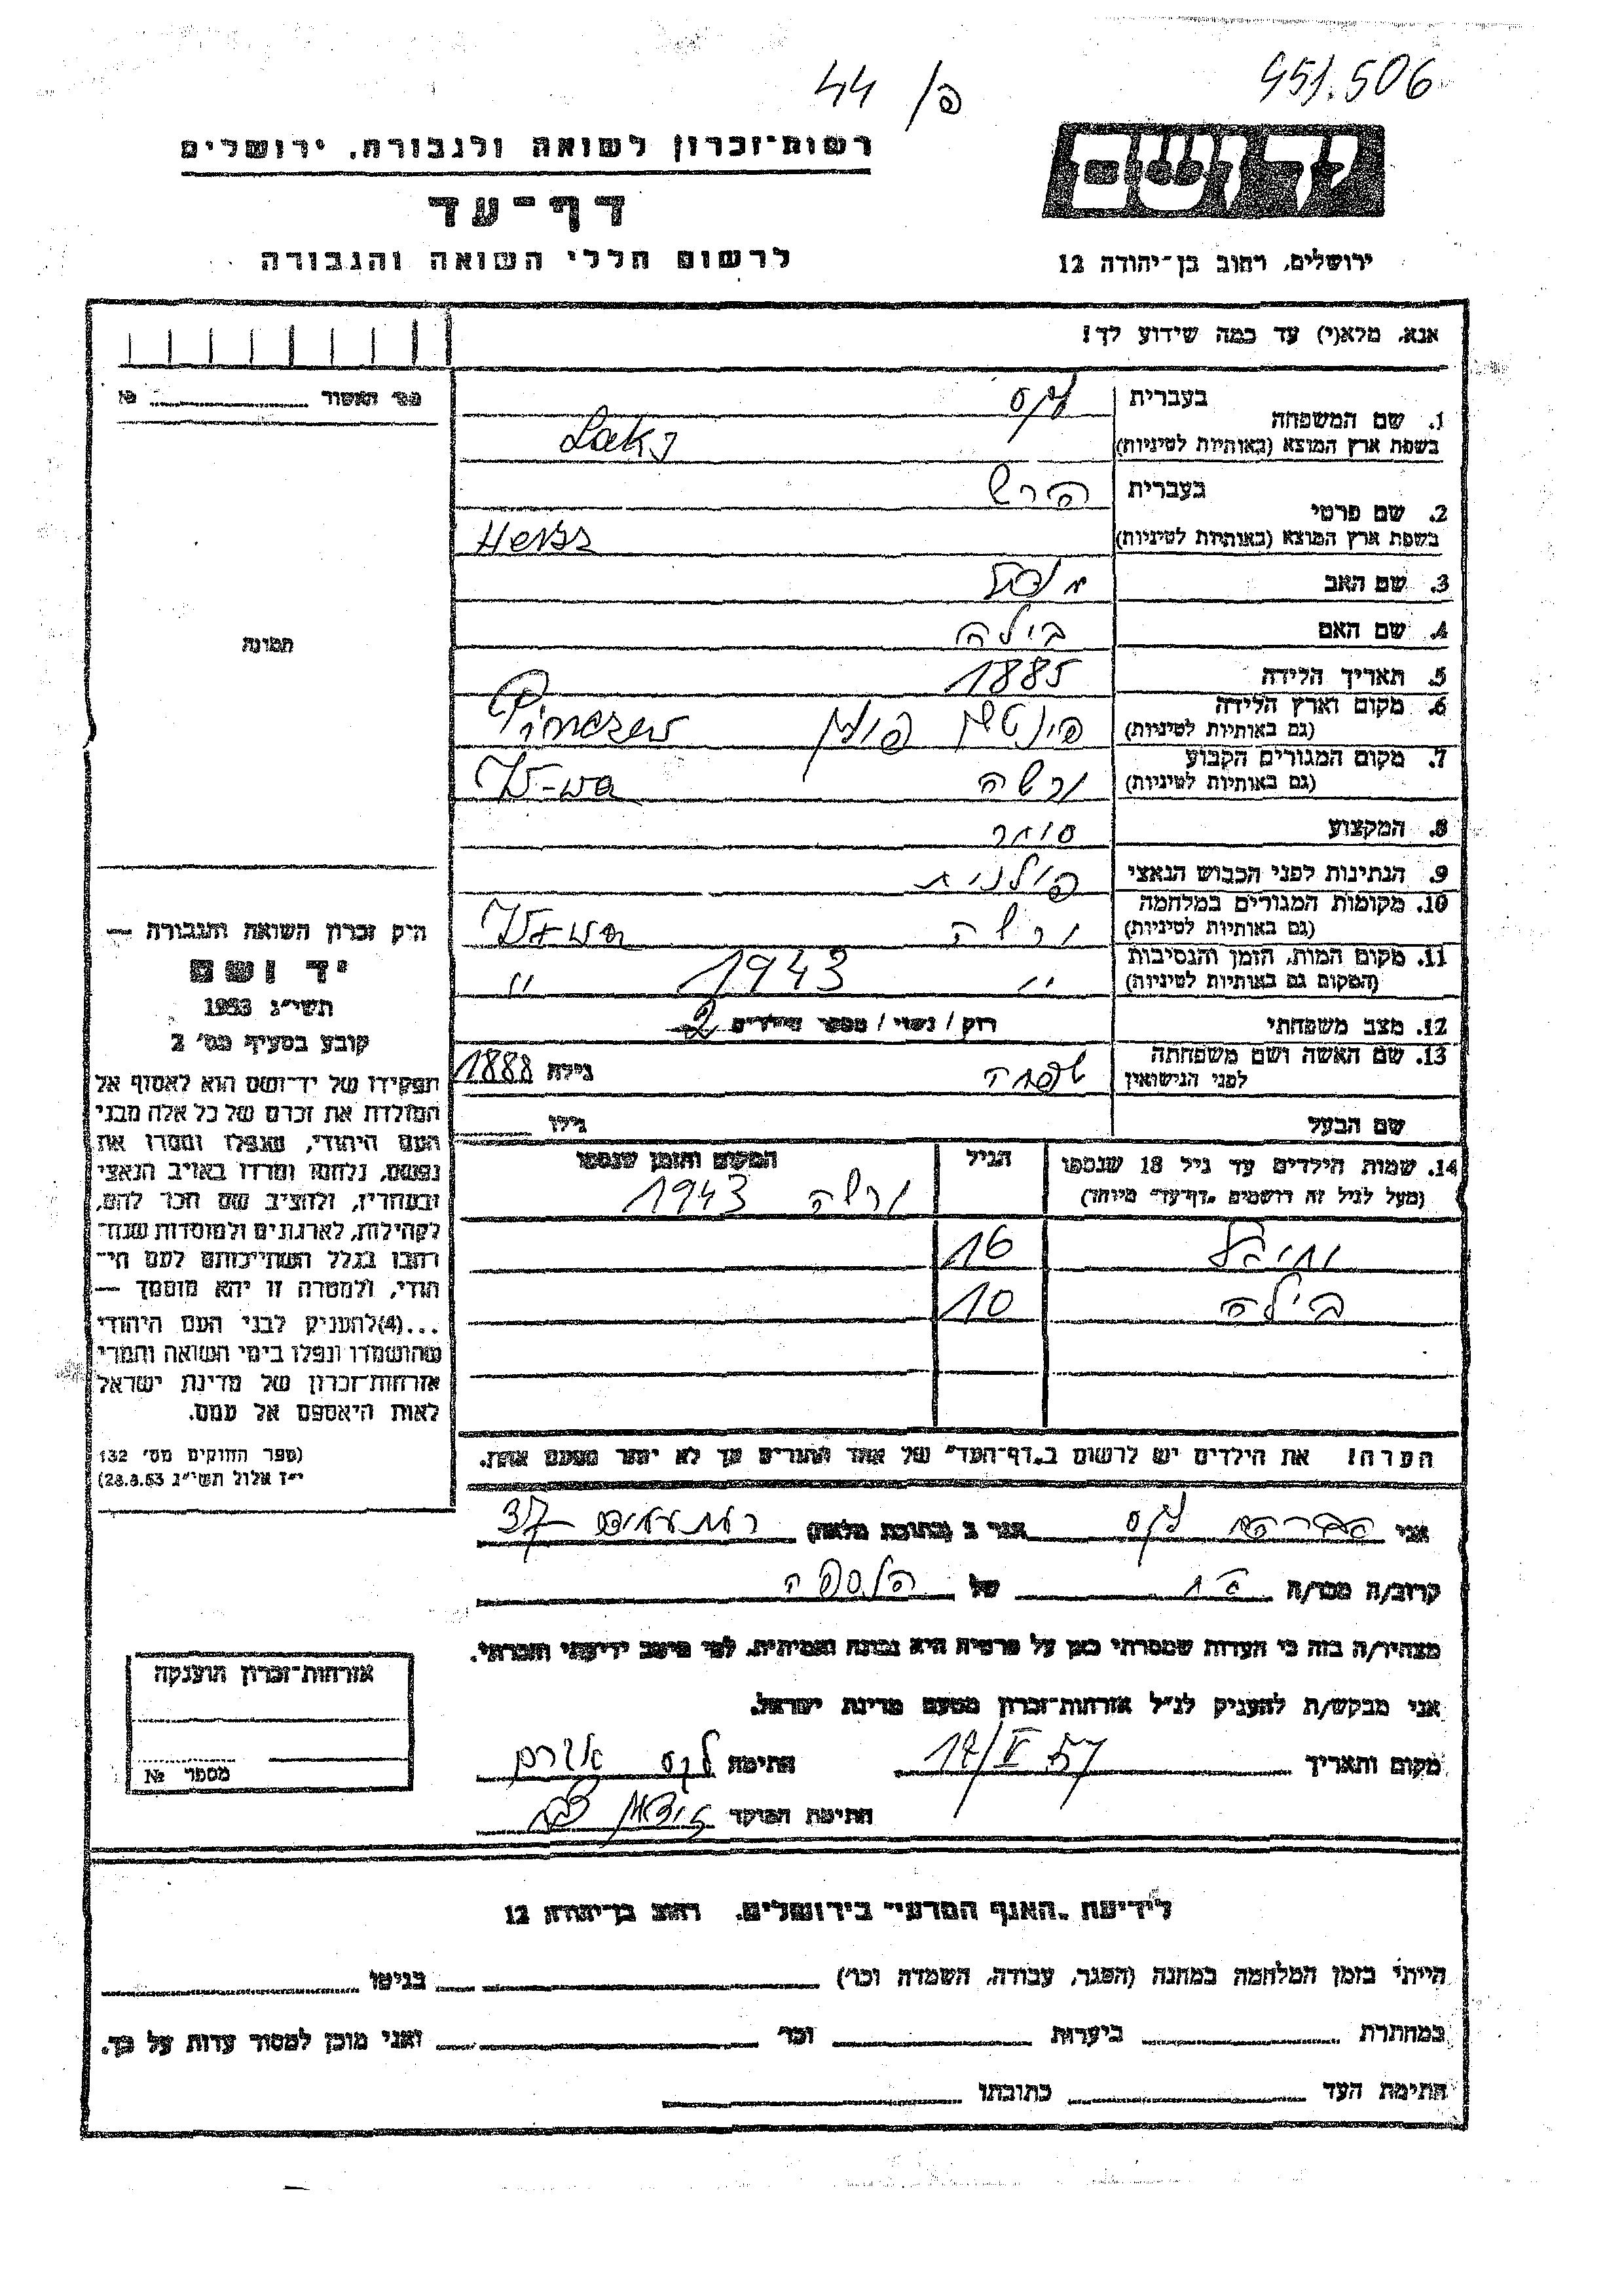 44 פ/
451.506
רשות־זכרון לשואה ולגבורה, ירושלים
דף־עד
לרשום חללי השואה והגבורה
יד ושם
ירושלים, רחוב בן־יהודה 12
אנא, מלא(י) עד כמה שידוע לך!
מס׳ האשור №
1. שם המשפחה
בעברית לקס
בשפת ארץ המוצא (באותיות לטיניות) Laks
2. שם פרטי
בעברית הרש
בשפת ארץ המוצא (באותיות לטיניות) Hersz
3. שם האב
4. שם האם בילה
5. תאריך הלידה 1885
6. מקום וארץ הלידה
(גם באותיות לטיניות) פולין Pinczew
7. מקום המגורים הקבוע
(גם באותיות לטיניות) ורשה W-wa
8. המקצוע סוחר
9. הנתינות לפני הכבוש הנאצי פולנית
10. מקומות המגורים במלחמה
(גם באותיות לטיניות) ורשה W-wa
11. מקום המות, הזמן והנסיבות
(המקום גם באותיות לטיניות) ״ 1943 ״
12. מצב משפחתי רוק / נשוי / מספר הילדים 2
13. שם האשה ושם משפחתה
לפני הנישואין שפרה גילה 1888
שם הבעל גילו
14. שמות הילדים עד גיל 18 שנספו
(מעל לגיל זה רושמים „דף־עד״ מיוחד)
הגיל
המקום והזמן שנספו
ורשה 1943
16
בילה 10
הערה! את הילדים יש לרשום ב„דף־העד״ של אחד ההורים אך לא יותר מפעם אחת.
תמונה
חוק זכרון השואה והגבורה —
יד ושם
תשי״ג 1953
קובע בסעיף מס׳ 2
תפקידו של יד־ושם הוא לאסוף אל
המולדת את זכרם של כל אלה מבני
העם היהודי, שנפלו ומסרו את
נפשם, נלחמו ומרדו באויב הנאצי
ובעוזריו, ולהציב שם וזכר להם,
לקהילות, לארגונים ולמוסדות שנח־
רבו בגלל השתייכותם לעם הי־
הודי, ולמטרה זו יהא מוסמך —
...(4)להעניק לבני העם היהודי
שהושמדו ונפלו בימי השואה והמרי
אזרחות־זכרון של מדינת ישראל
לאות היאספם אל עמם.
(ספר החוקים מס׳ 132
י״ז אלול תשי״ג 28.8.53)
אני אברהם לקס הגר ב (כתובת מלאה) 37
קרוב/ה מכר/ה בן של הנספה
מצהיר/ה בזה כי העדות שמסרתי כאן על פרטיה היא נכונה ואמיתית, לפי מיטב ידיעתי והכרתי.
אני מבקש/ת להעניק לנ״ל אזרחות־זכרון מטעם מדינת ישראל.
מקום ותאריך 17/V 57 חתימה לקס אברהם
חתימת הפוקד
אזרחות־זכרון הוענקה
מספר №
לידיעת „האגף המדעי״ בירושלים, רחוב בן־יהודה 12
הייתי בזמן המלחמה במחנה (הסגר, עבודה, השמדה וכו׳) בגיטו
במחתרת ביערות וכו׳ ואני מוכן למסור עדות על כך.
חתימת העד כתובתו